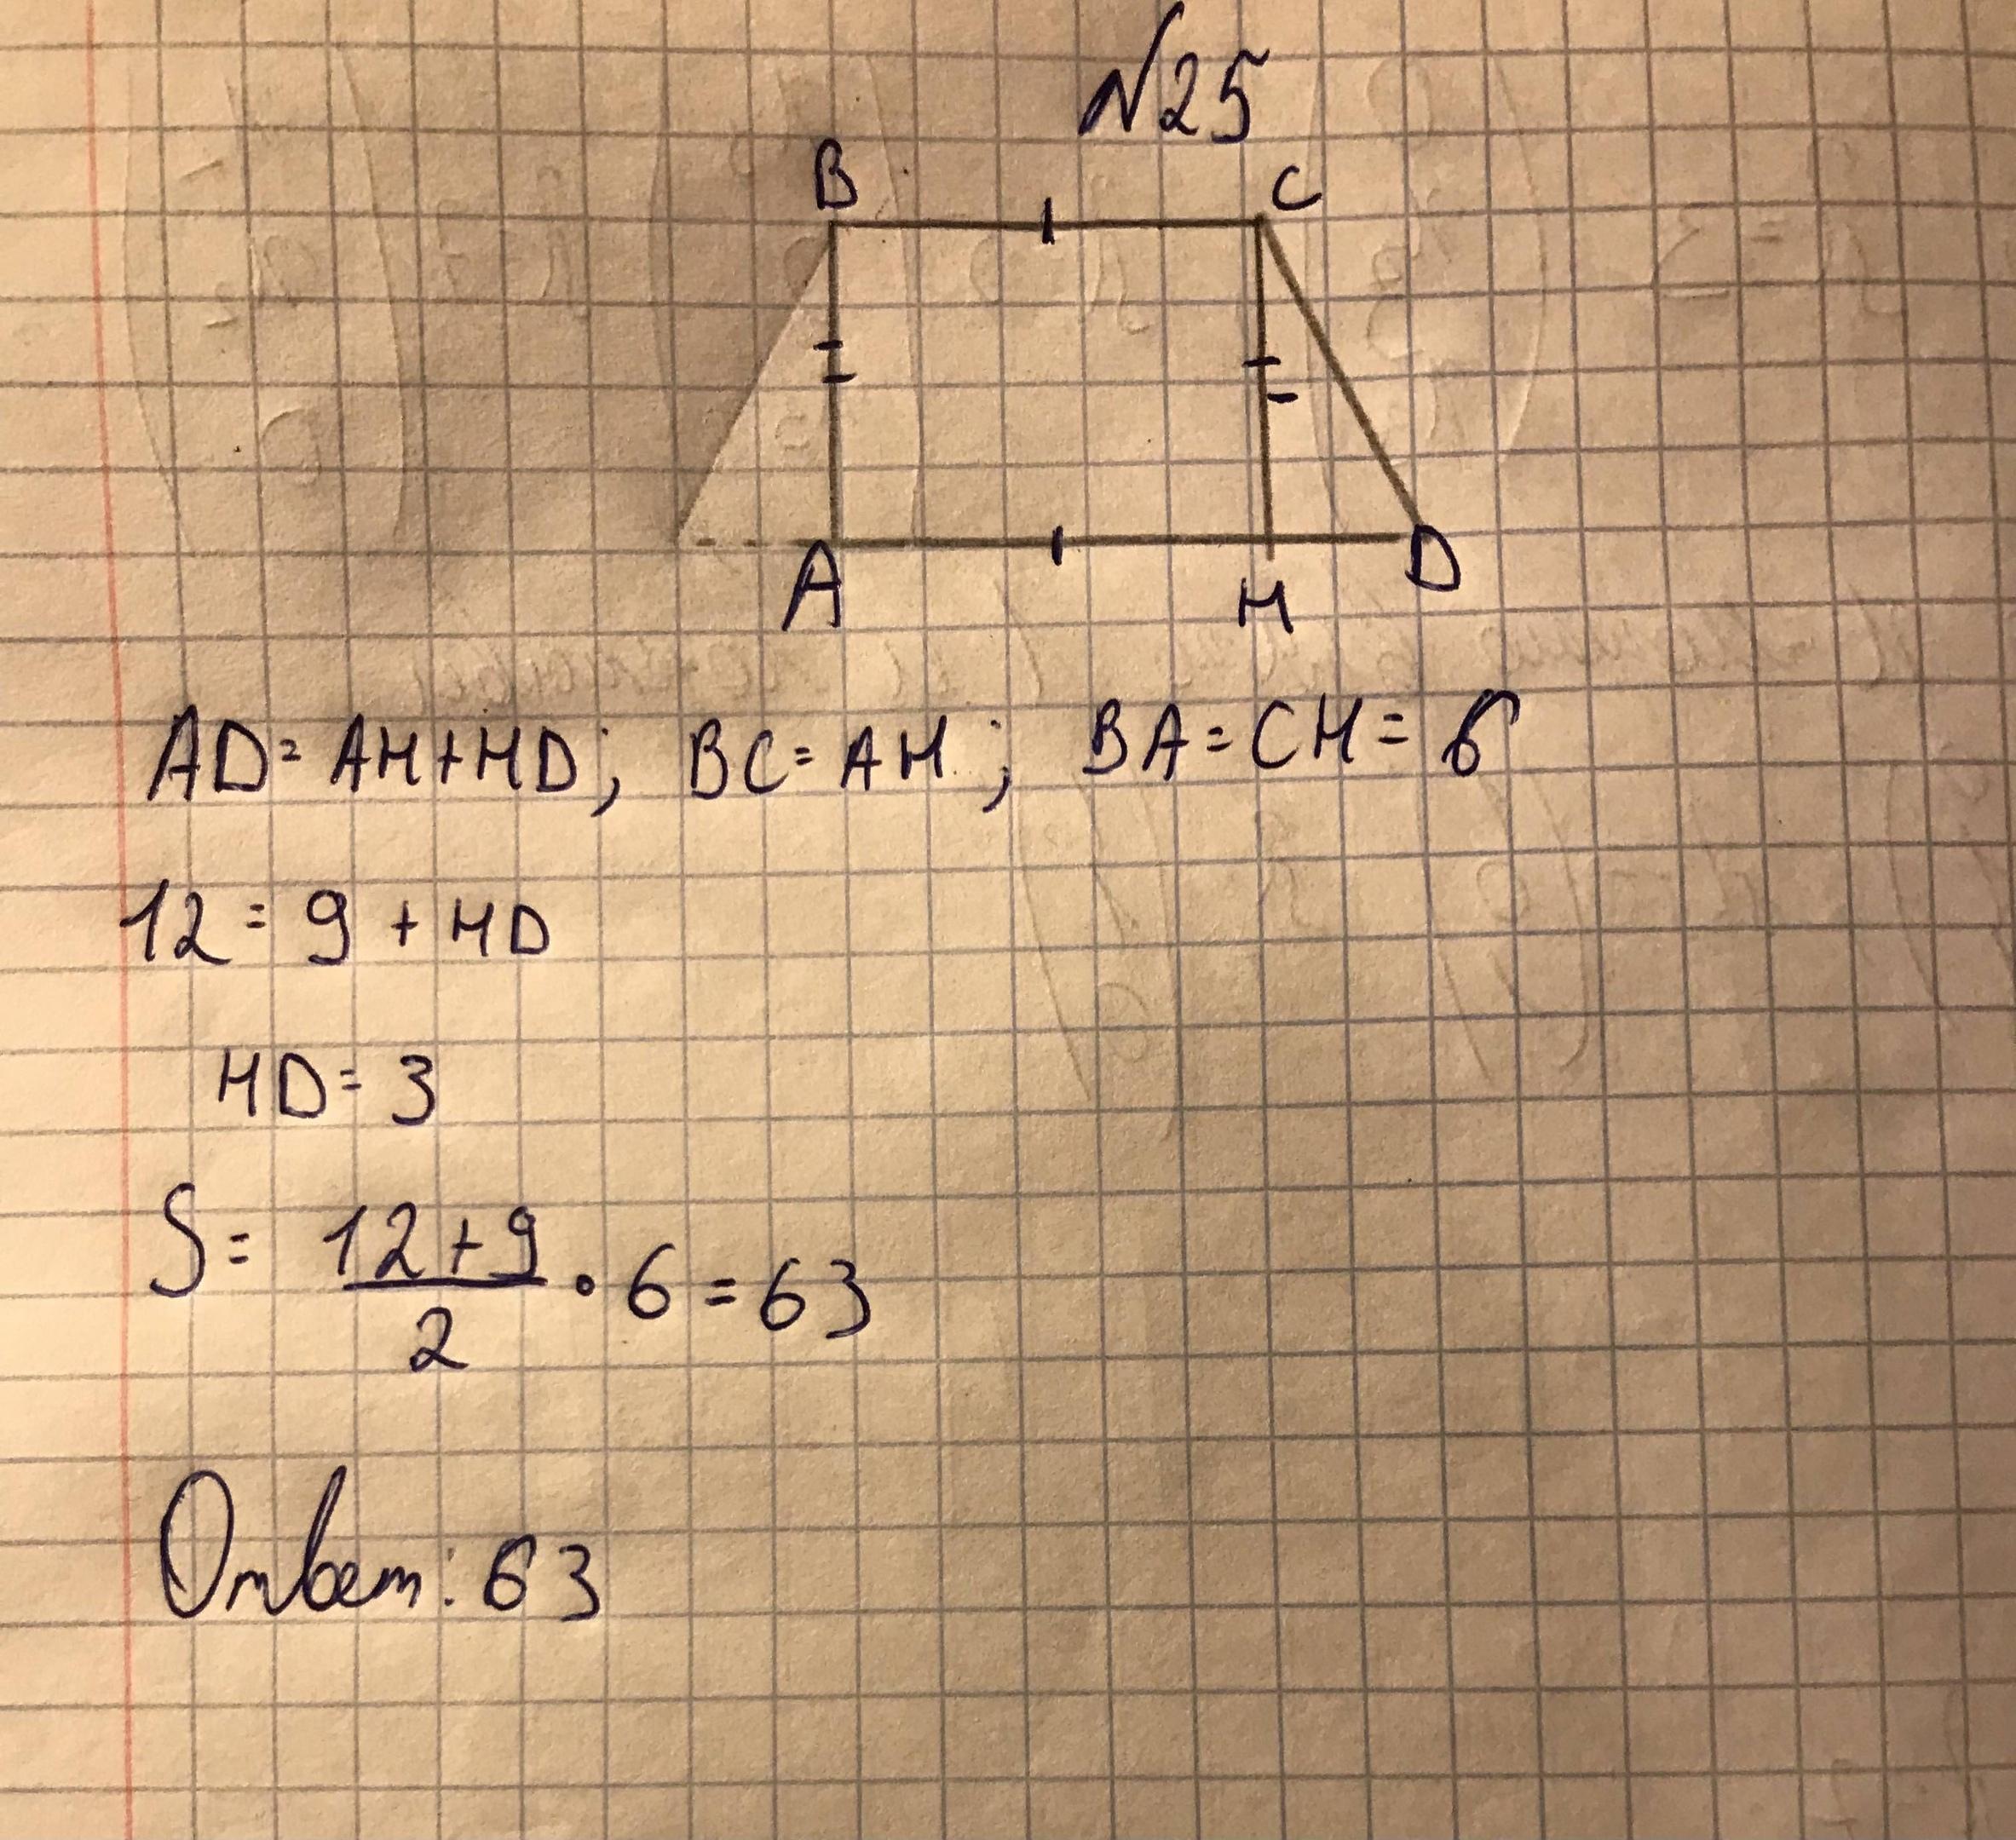 №25
B C
A H D
AD = AH + HD; BC = AH; BA = CH = 6
12 = 9 + HD
HD = 3
S = 12+9/2 · 6 = 63
Ответ: 63